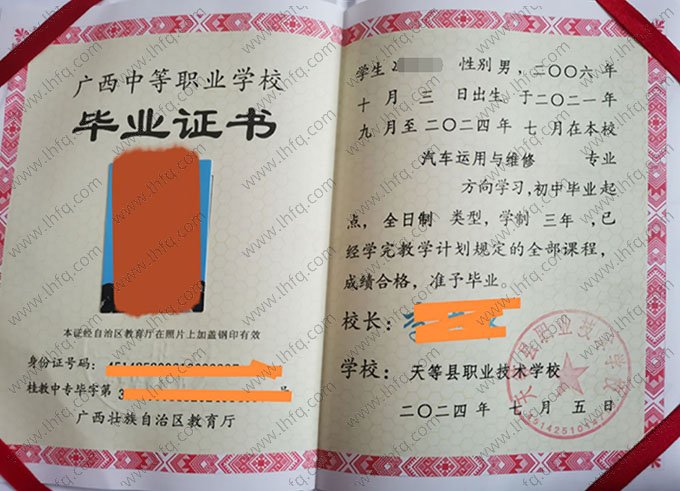 广西中等职业学校
毕业证书
本证经自治区教育厅在照片上加盖钢印有效
身份证号码:
桂教中专毕字第 号
广西壮族自治区教育厅
学生 性别男,二〇〇六年
十月三日出生,于二〇二一年
九月至二〇二四年七月在本校
汽车运用与维修 专业
方向学习,初中毕业起
点,全日制 类型,学制 三年,已
经学完教学计划规定的全部课程,
成绩合格,准予毕业。
校长:
学校: 天等县职业技术学校
二〇二四年七月五日
天等县职业技术学校
www.lhfq.com